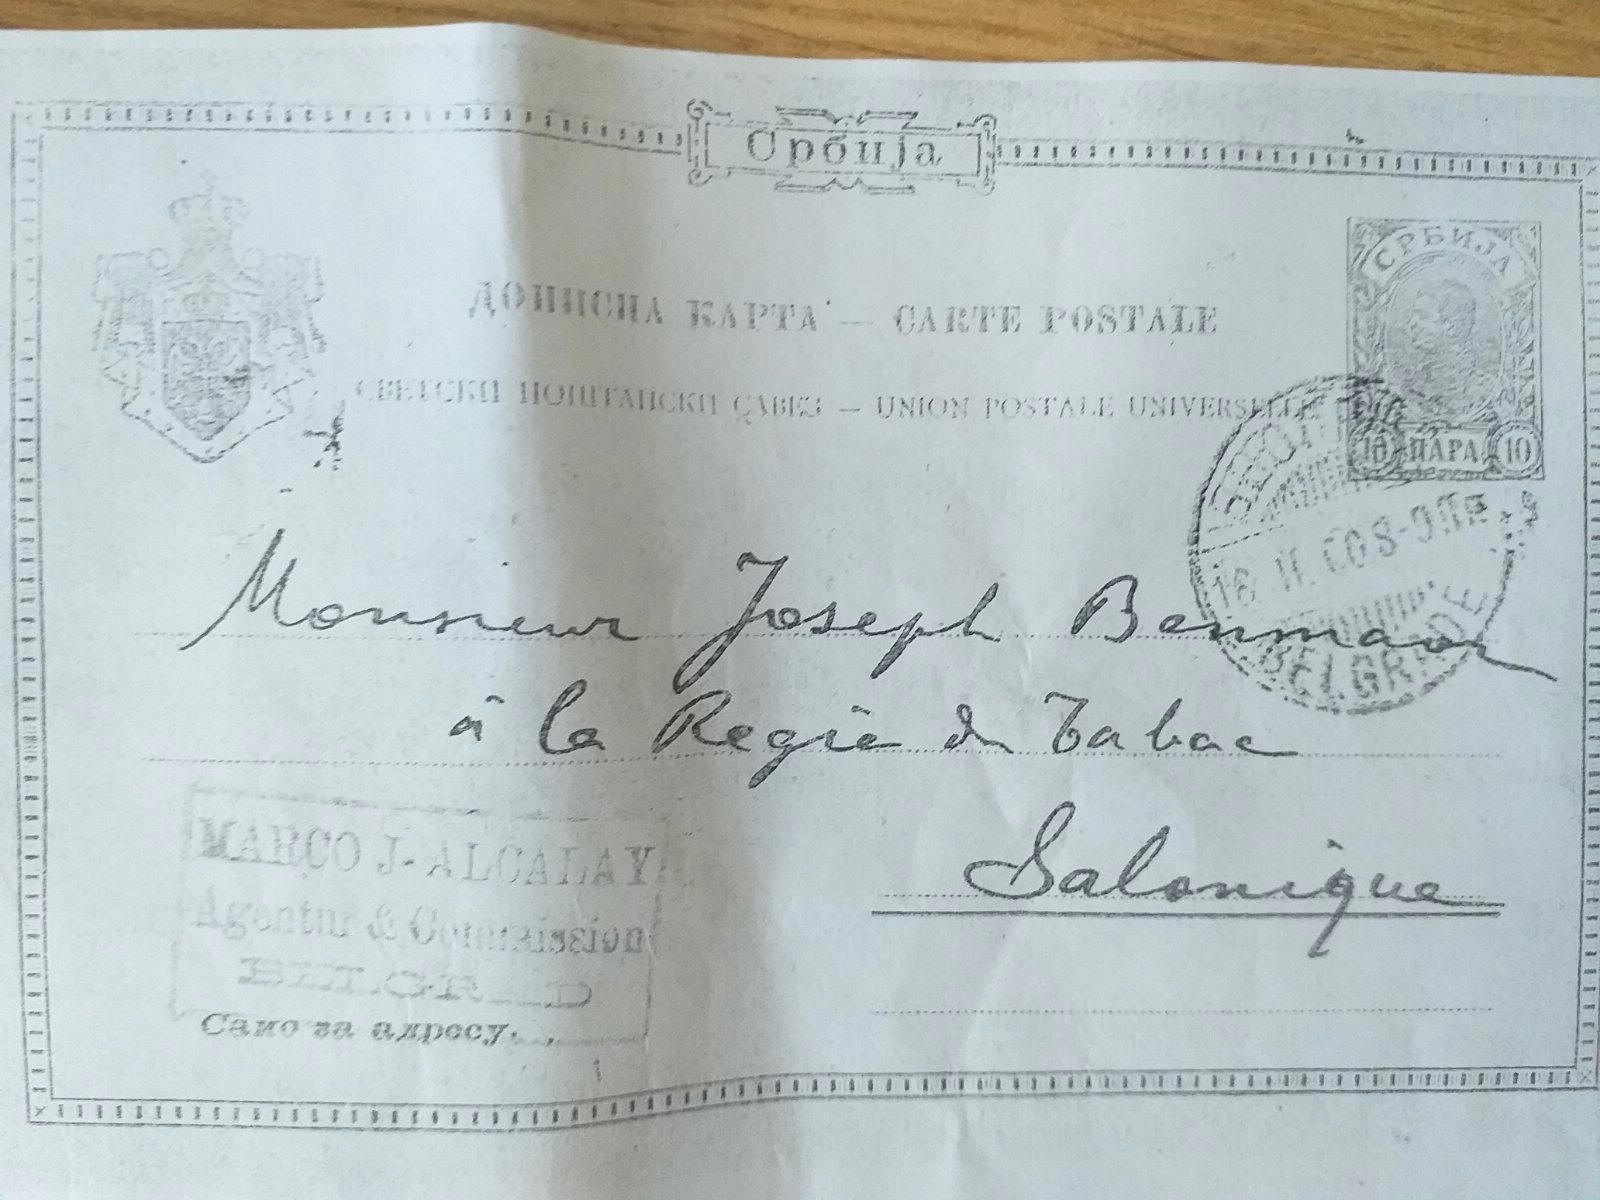 Србија
СРБИЈА
ДОПИСНА КАРТА — CARTE POSTALE
СВЕТСКИ ПОШТАНСКИ САВЕЗ — UNION POSTALE UNIVERSELLE
10 ПАРА 10
BELGRADE
Monsieur Joseph
à la Regie du Tabac
Salonique
MARCO J. ALCALAY
Agentur & Commission
BELGRAD
Само за адресу.